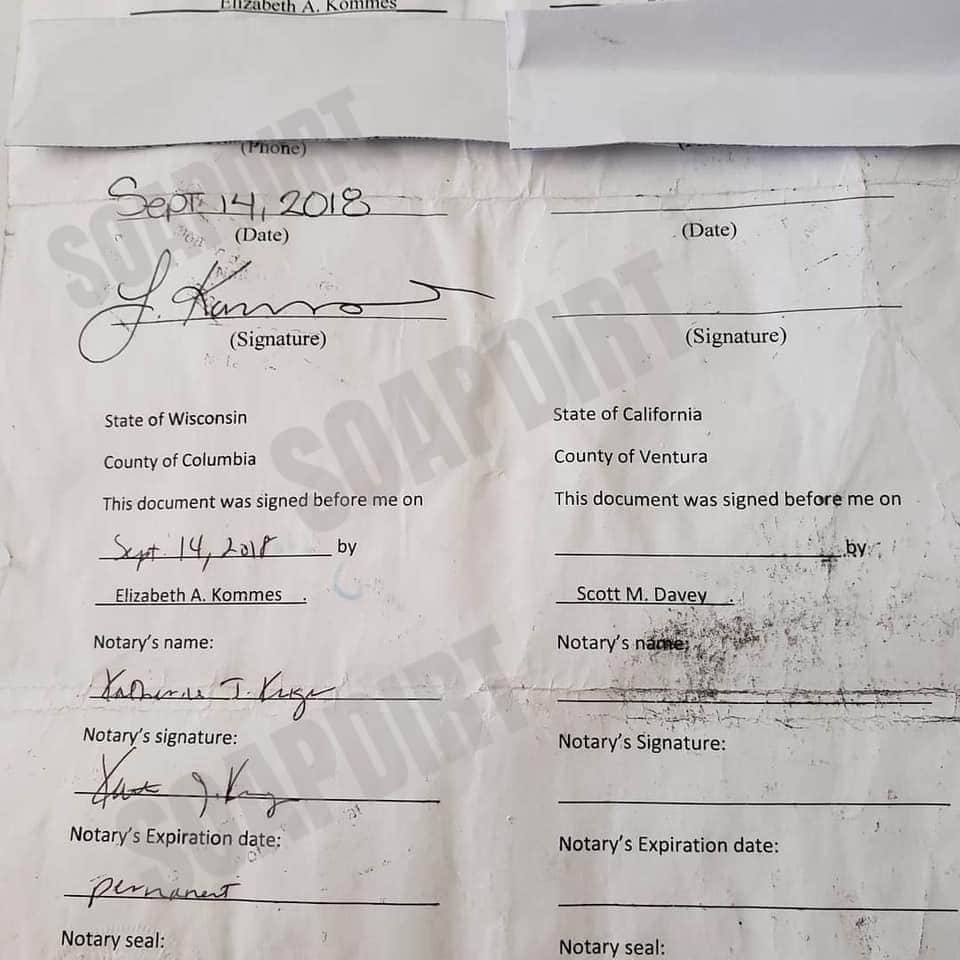 Elizabeth A. Kommes
(Phone)
Sept. 14, 2018
(Date)
(Date)
(Signature)
(Signature)
State of Wisconsin
County of Columbia
This document was signed before me on
Sept. 14, 2018 by
Elizabeth A. Kommes .
Notary's name:
Katherine J. Kruger
Notary's signature:
Notary's Expiration date:
permanent
Notary seal:
State of California
County of Ventura
This document was signed before me on
by
Scott M. Davey .
Notary's name:
Notary's Signature:
Notary's Expiration date:
Notary seal:
SOAPDIRT
SOAPDIRT
SOAPDIRT